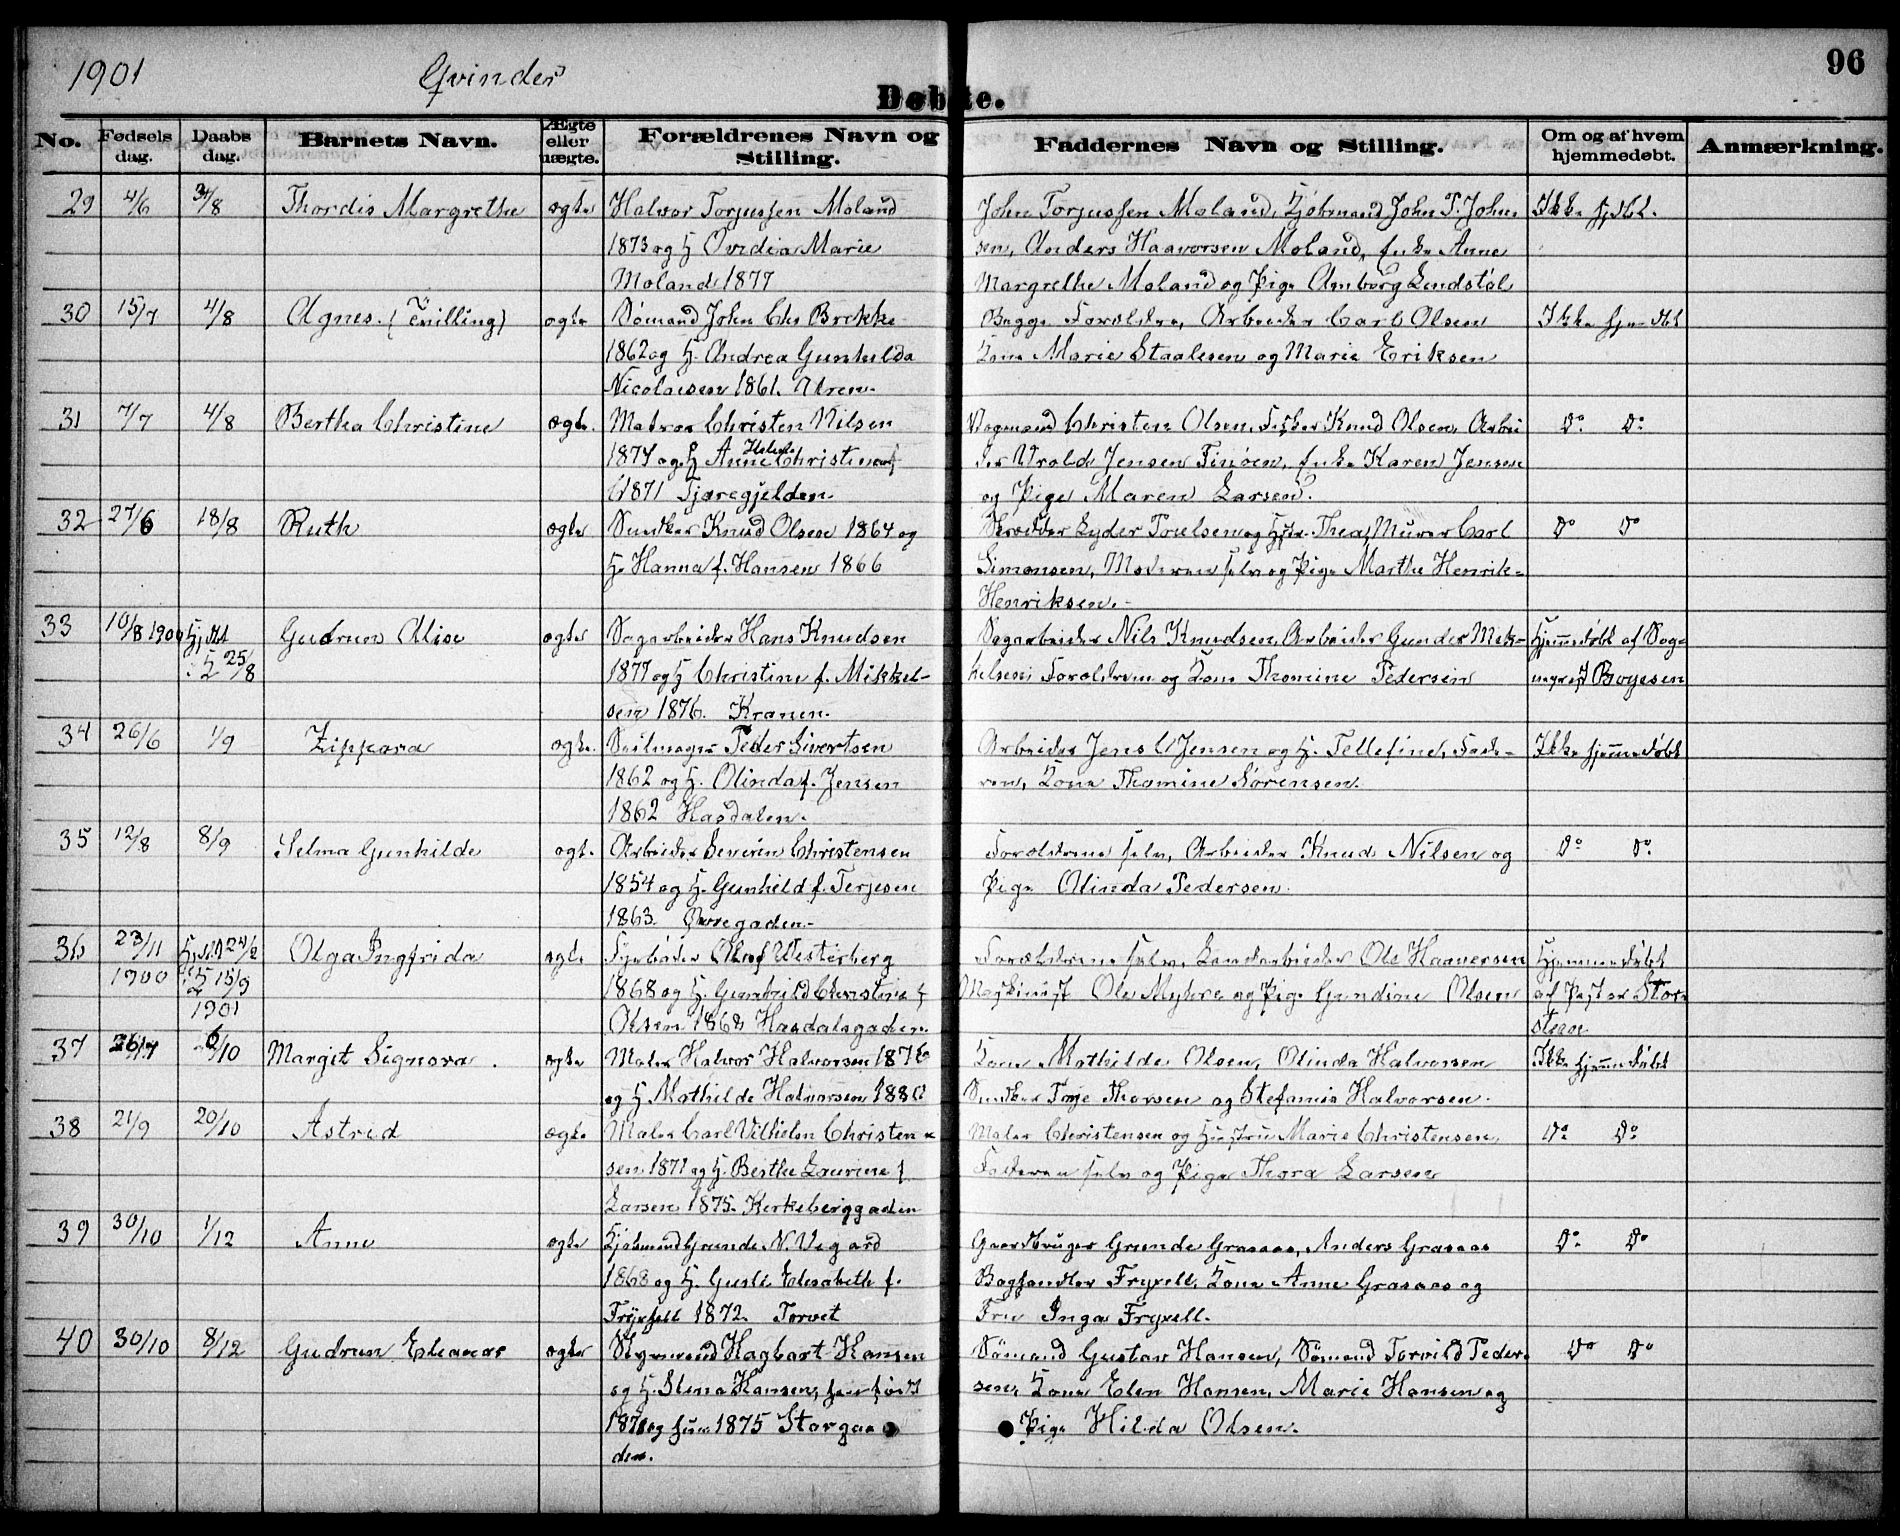 1901 Qvinder 96
Døbte.
No. Fødsels dag. Daabs dag. Barnets Navn. Ægte eller uægte. Forældrenes Navn og Stilling. Faddernes Navn og Stilling. Om og af hvem hjemmedøbt. Anmærkning.
29 4/6 4/8 Thordis Margrethe ægte Halvor Torjussen Moland John Torjussen Moland, Kjøbmand John P. John- Ikke hjdbt.
1873 og H Ovidia Marie sen, Anders Haavorsen Moland, Enke Anne
Moland 1877 Margrethe Moland og Pige Amborg Lendstøl
30 15/7 4/8 Agnes. (Tvilling) ægte Sømand John Chr Brekke Begge Forældre, Arbeider Carl Olsen Ikke hjemdbt
1862 og H. Andrea Gunhilda Kone Marie Staalesen og Marie Eriksen
Nicolaisen 1861.
31 7/7 4/8 Bertha Christine ægte. Matros Christen Nilsen Vognmand Christen Olsen, Fisker Knud Olsen, Arbei Do Do
1874 og H Anne Helene Christine f der Jensen Enke Karen Jensen
1871 Tjæregjelden. og Pige Maren Larsen.
32 27/6 18/8 Ruth ægte Snedker Knud Olsen 1864 og Skrædder Lyder Poulsen og Hstr. Thea, Murer Carl Do Do
H. Hanna f. Hansen 1866 Simonsen, Moderen selv og Pige Marthe Henrik-
Henriksen.
33 10/8 1900 Hjdbt Gudrun Alise ægte Sagarbeider Hans Knudsen Sagarbeider Nils Knudsen, Arbeider Gunder Mik- Hjemmedøbt af Sog-
i K 25/8 1877 og H Christine f. Mikkel- kelsen, Forældrene og Kone Thomine Pedersen nepræst Boyesen
sen 1876. Kranen.
34 26/6 1/9 Zippora ægte. Seilmager Peder Sivertsen Arbeider Jens C Jensen og H. Tellefine, Fade- Ikke hjemmedøbt
1862 og H. Olinda f. Jensen ren, Kone Thomine Sørensen.
1862 Hasdalen.
35 12/8 8/9 Selma Gunhilde ægt. Arbeider Severin Christensen Forældrene selv, Arbeider Knud Nilsen og Do Do.
1854 og H. Gunhild f. Terjesen Pige Olinda Pedersen.
1863. Øvregaden.
36 23/11 Hjdbt 24/2 Olga Ingfrida ægte Fyrbøder Olaf Westerberg Forældrene selv, Landarbeider Ole Haavorsen Hjemmedøbt
1900 i K 15/9 1868 og H. Gunhild Christine f Maskinist Ole Myhre og Pige Gundine Olsen af Pastor Stor-
1901 Olsen 1868 Hasdalsgaden. steen
37 26/7 6/10 Margit Signora. ægte Maler Halvor Halvorsen 1876 Kone Mathilde Olsen, Olinda Halvorsen Ikke hjemmedøbt
og H Mathilde Halvorsen 1880 Snedker Terje Thorsen og Stefanie Halvorsen.
38 21/9 20/10 Astrid ægte Maler Carl Vilhelm Christen- Maler Christensen og Hustru Marie Christensen, Do Do
sen 1871 og H. Berthe Laurine f. Faderen selv og Pige Thora Larsen
Larsen 1875. Kirkeberggaden
39 30/10 1/12 Anne ægte Kjøbmand Grunde N. Vegard Gaardbruger Grunde Grasaas, Anders Grasaas Do Do
1868 og H Gusti Elisabeth f. Boghandler Fryxell, Kone Anne Grasaas og
Fryxell 1872. Torvet Fru Inga Fryxell.
40 30/10 8/12 Gudrun Eleanor ægte Styrmand Hagbart Hansen Sømand Gustav Hansen, Sømand Torvild Peder- Do Do
og H. Stina Hansen, han født sen, Kone Elen Hansen, Marie Hansen og
og hun 1875 Storgaa Pige Hilda Olsen.
den.